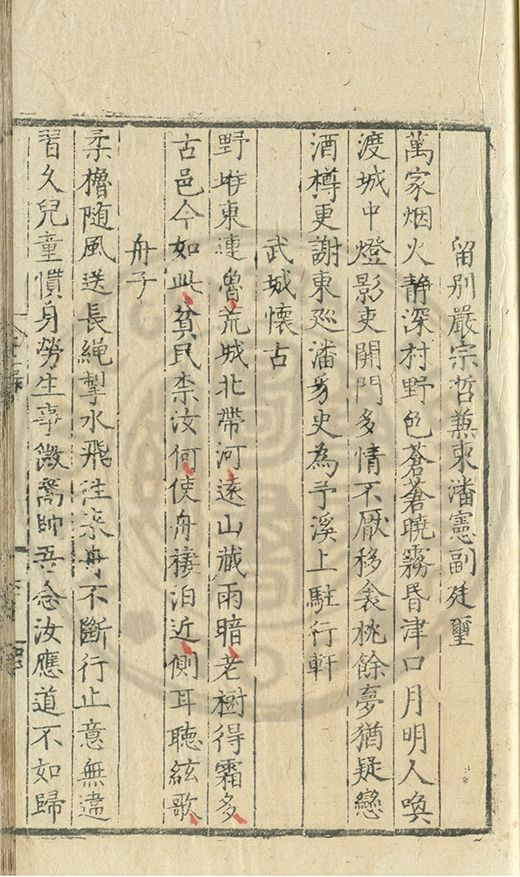 留別嚴宗哲兼柬潘憲副廷璽
萬家烟火静深村野色蒼蒼曉霧昏津口月明人喚
渡城中燈影吏開門多情不厭移衾枕餘夢猶疑戀
酒樽更謝東廵潘芳史為予溪上駐行軒
武城懷古
野墅東連魯荒城北帶河遠山藏雨暗老樹得霜多
古邑今如此貧民柰汝何使舟棲泊近側耳聽絃歌
舟子
柔櫓随風送長繩掣水飛往来舟不斷行止意無違
習久兒童慣身勞生事微篙師吾念汝應道不如歸